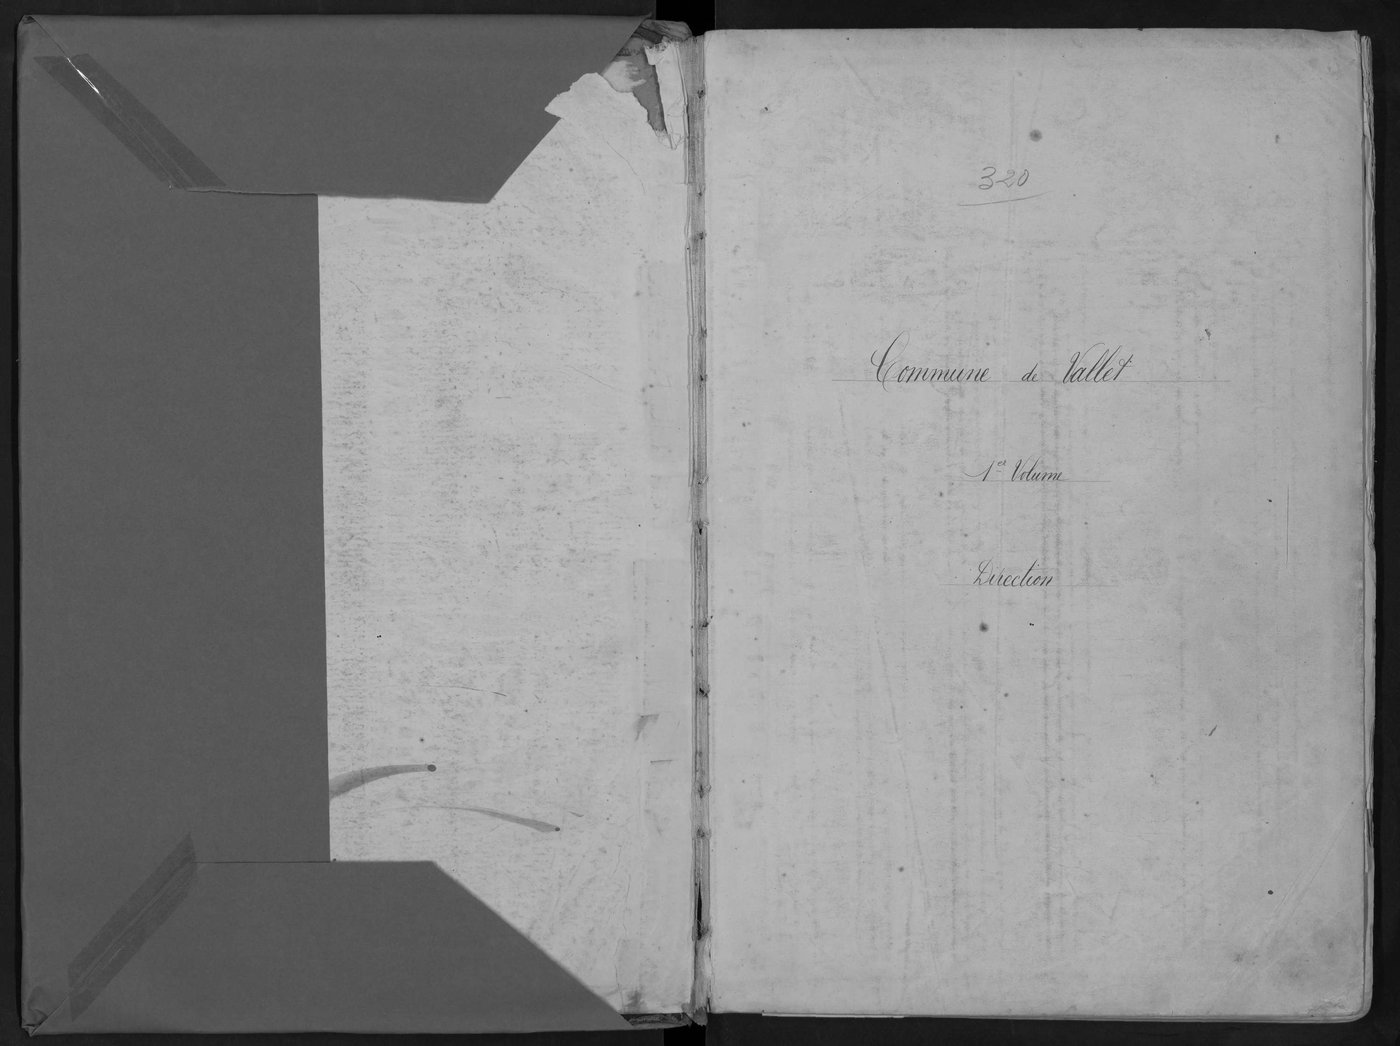 320
Commune de Vallet
1er Volume
Direction